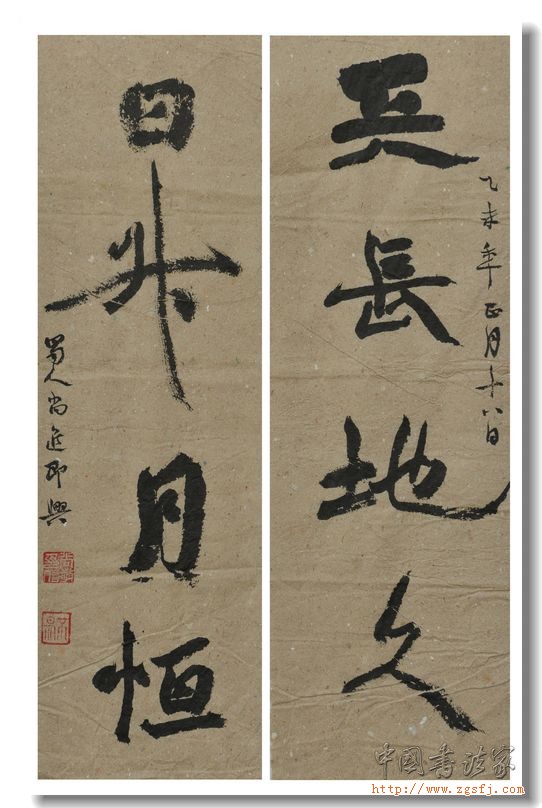 天長地久
乙未年正月十八日
日升月恒
蜀人尚即興
中國書法家
http://www.zgsfj.com